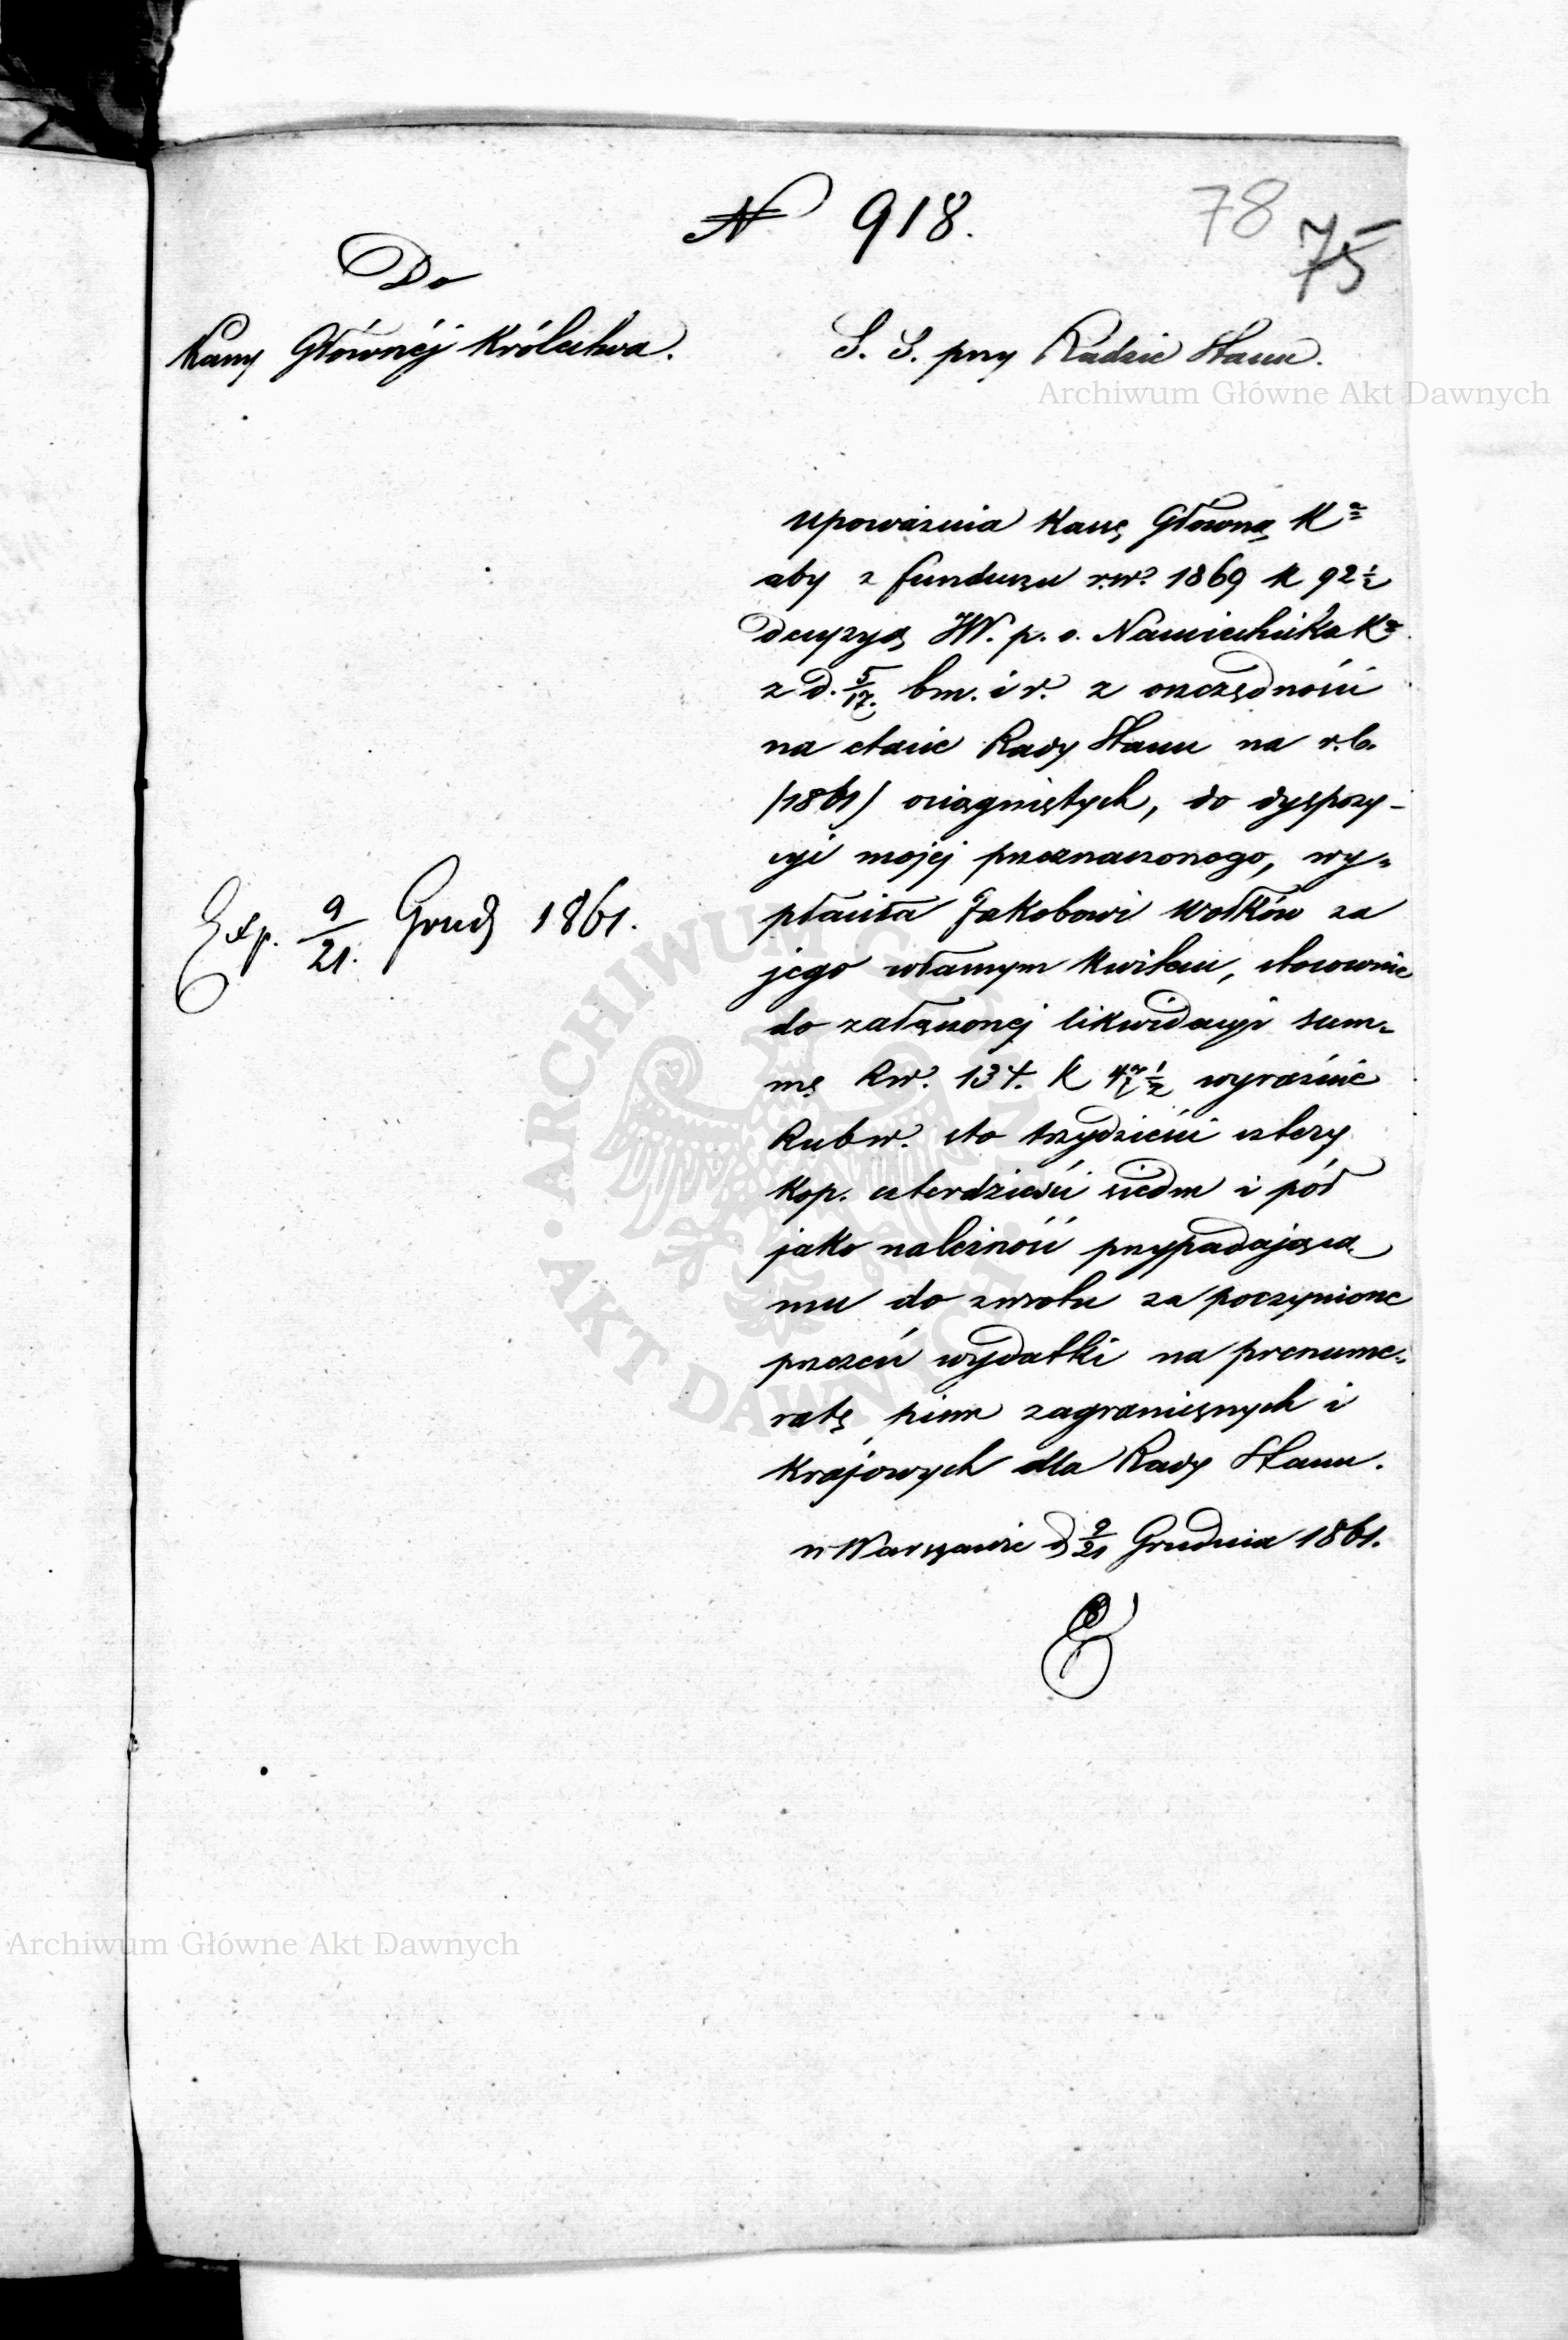 № 918.
78
75
Do
Kassy Głównéj Królestwa.
S. S. przy Radzie Stanu.
Archiwum Główne Akt Dawnych
upoważnia Kassę Główną Kᵃ
aby z funduszu rsr. 1869 k 92 ½
decyzyą JW. p. o. Namiestnika Kᵃ
z d. 5/17. bm. i r. z oszczędności
na etacie Rady Stanu na r. b.
/1861/ osiągniętych, do dyspozy-
cyi mojej przeznaczonego, wy-
płaciła Jakobowi Wołków za
jego własnym kwitem, stosownie
do załączonej likwidacyi sum-
mę Rsr. 134. k 47 ½ wyraźnie
Rubsr. sto trzydzieści cztery
kop. czterdzieści siedm i pół
jako należność przypadającą
mu do zwrotu za poczynione
przezeń wydatki na prenume-
ratę pism zagranicznych i
krajowych dla Rady Stanu.
w Warszawie d 9/21 Grudnia 1861.
Exp. 9/21. Grud 1861.
ARCHIWUM GŁÓWNE
AKT DAWNYCH
Archiwum Główne Akt Dawnych